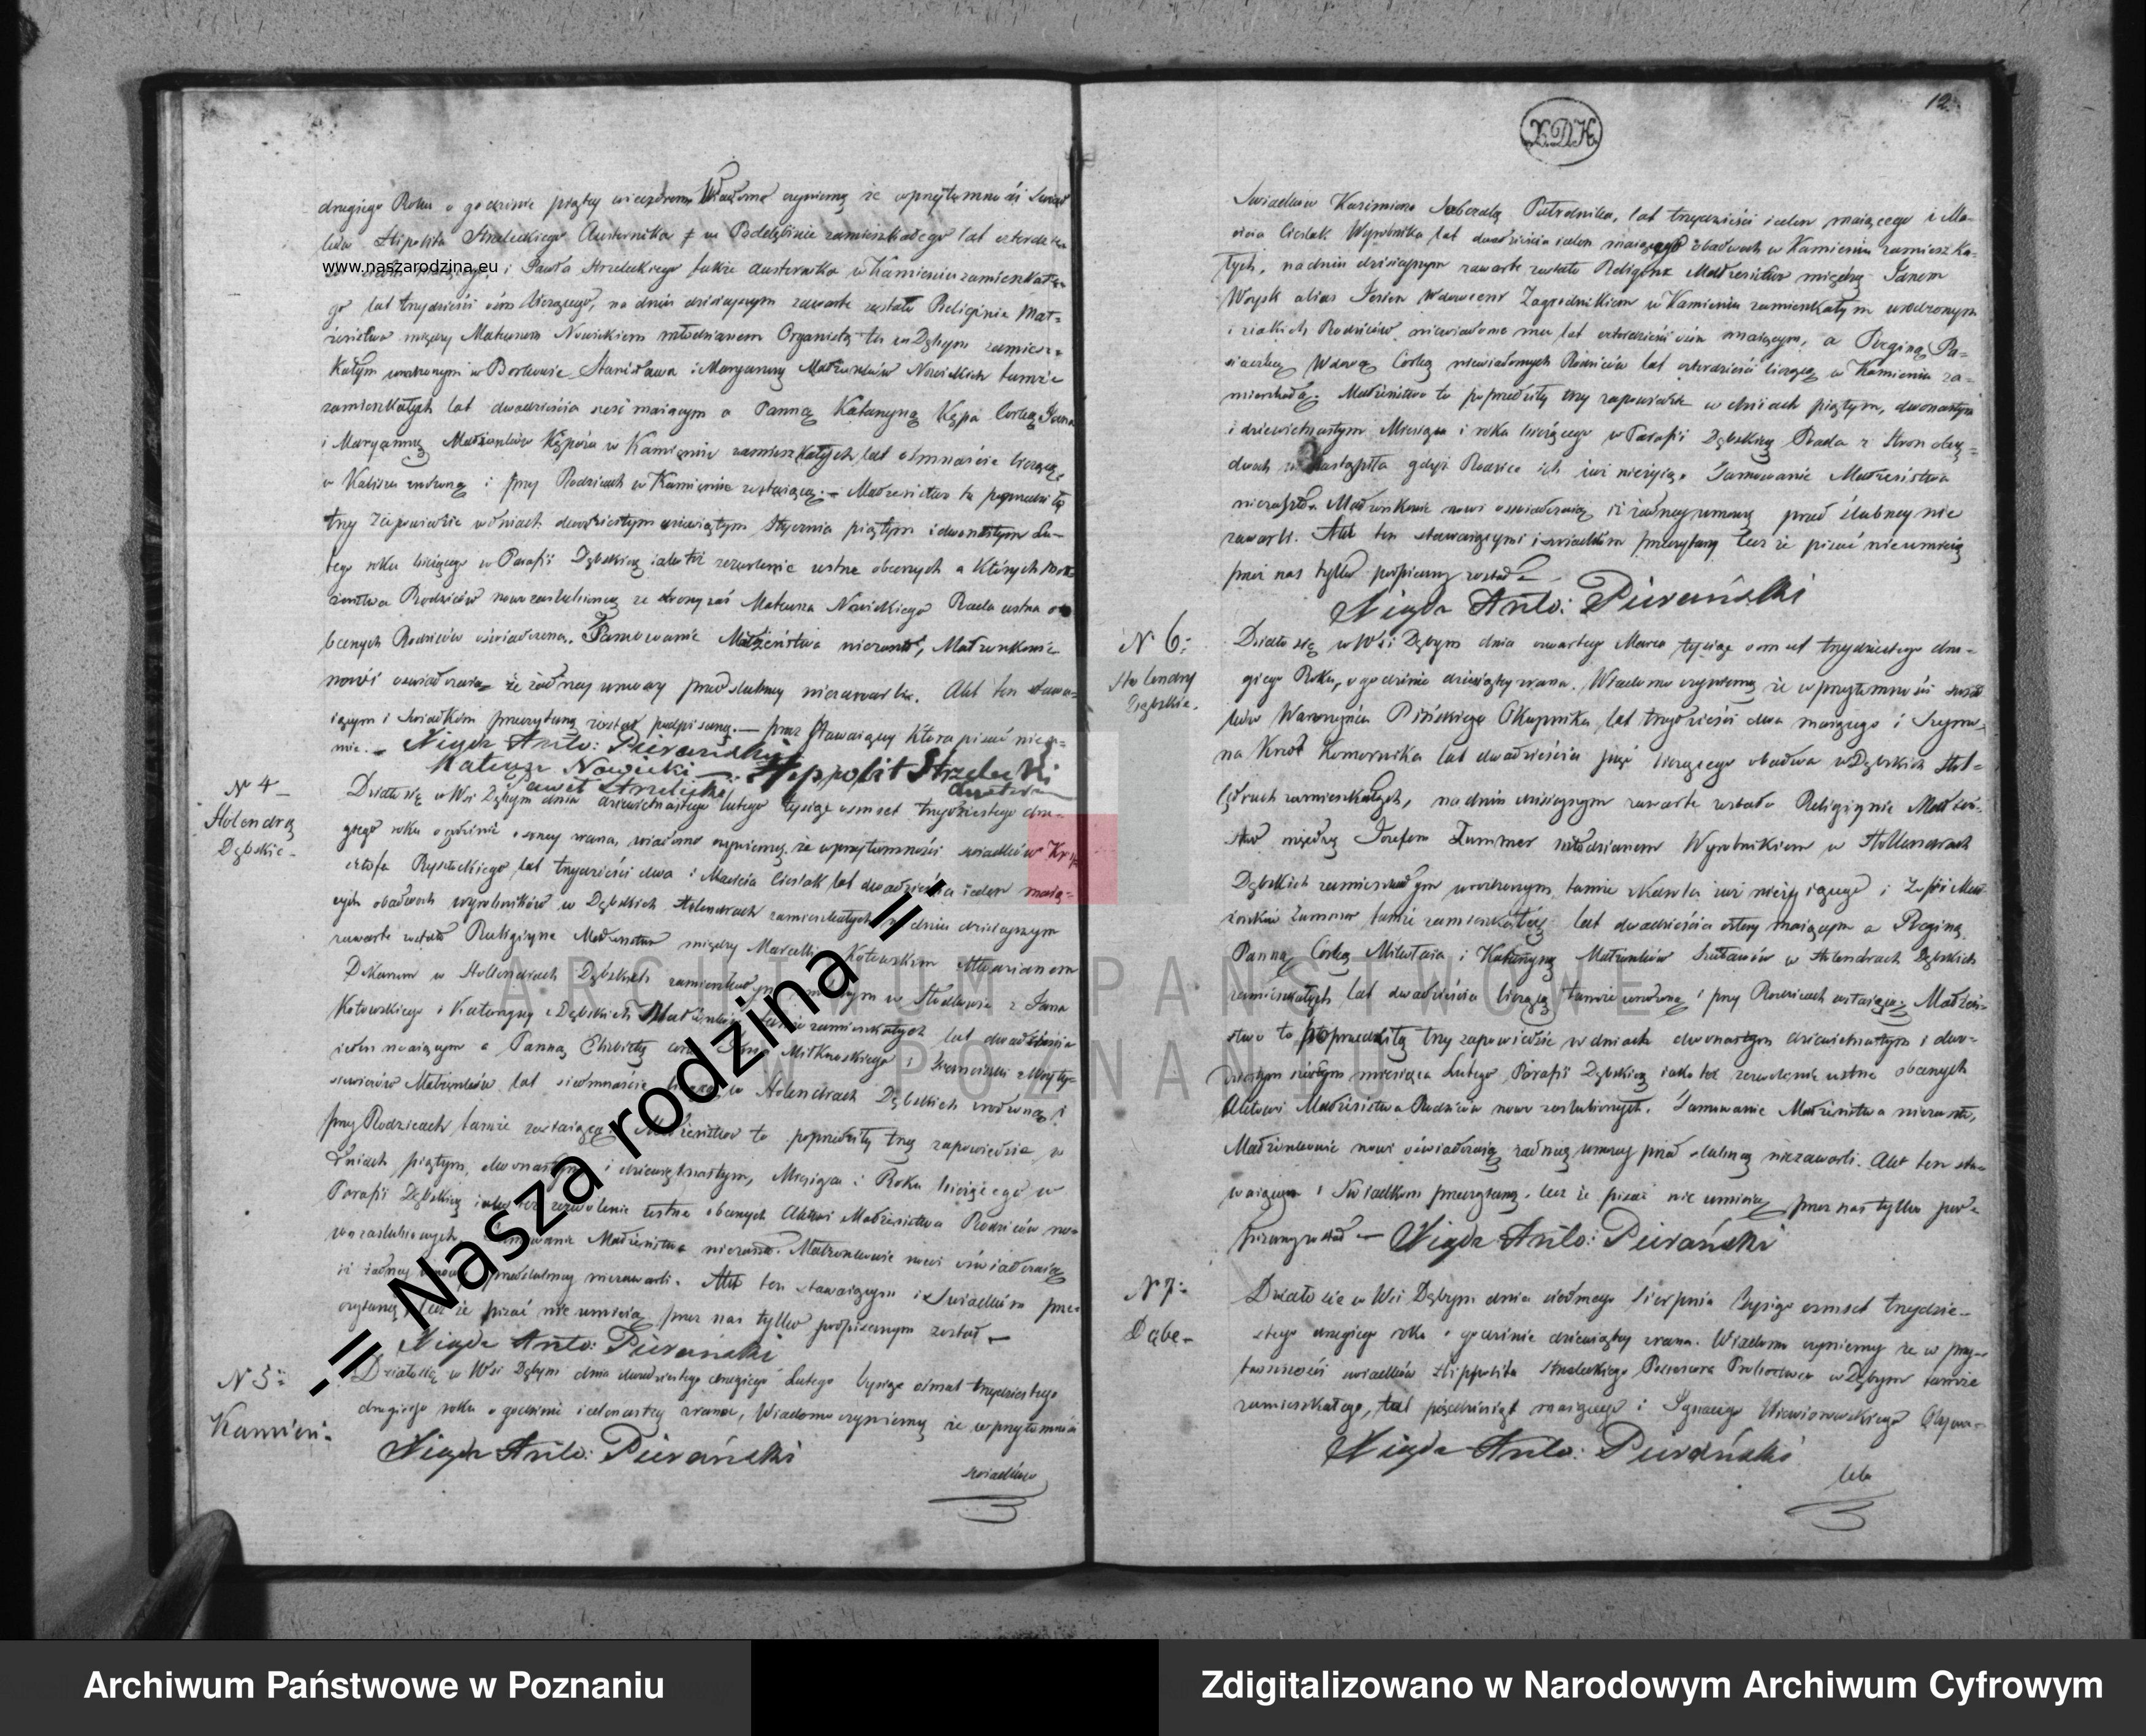 drugiego Roku o godzinie piątey wieczorem Wiadomo czyniemy że w przytomności Świad
ków Hipolita Strzeleckiego Austernika w zamieszkałego lat czterdzieści
www.naszarodzina.eu
i Pawła Strzeleckiego także Austernika w Kamieniu zamieszkałe
go lat trzydzieści ośm liczącego, na dniu dzisieyszym zawarte zostało Religijnie Mał=
żeństwo między Mateuszem Nowickiem młodzianem Organistą tu w Dębym zamiesz=
kałym urodzonym w Borkowie Stanisława i Maryanny Małżonków Nowickich tamże
zamieszkałych lat dwadzieścia sześć maiącym a Panną Katarzyną Kępa Corką Jana
i Maryanny Małżonków w Kamieniu zamieszkałych lat ośmnaście liczącą
w Kaliszu urodzoną i przy Rodzicach w Kamieniu zostaiącą. – Małżeństwo to poprzedziły
trzy Zapowiedzie w dniach dwudziestym dziewiątym Stycznia piątym i dwunastym Lu-
tego roku bieżącego w Parafii Dębskiey iako też zezwolenie ustne obecnych a Których
żeństwa Rodziców nowozaślubioney ze strony zaś Mateusza Nowickiego Rada ustna o
becnych Rodziców oświadczona. Tamowanie Małżeństwa niezaszło, Małżonkowie
nowi oświadczaią że żadney umowy przedślubney niezawarli. Akt ten stawa=
iącym i świadkom przeczytany został podpisany. — przez Stawaiący która pisać nieu=
mie. – Xiądz Anto: Pierański
Mateusz Nowicki — Hippolit Strzelecki
Paweł Strzelecki
N 4 –
Holendry
Dębskie –
Działo się w Wsi Dębym dnia dziewiętnastego Lutego tysiąc osmset trzydziestego dru-
giego roku o godzinie osmey zrana, wiadomo czyniemy, że w przytomności świadków Krzy
sztofa Ryszelkiego lat trzydzieści dwa i Macieia Cieslak lat dwadzieścia ieden maią=
cych obudwóch wyrobników w Dębskich Holendrach zamieszkałych na dniu dzisieyszym
zawarte zostało Religijne Małżeństwo między Marcellim Kotowskim Młodzianem
w Hollendrach Dębskich zamieszkałym z Jana
Kotowskiego i Katarzyny z Dębskich Małżonków tamże zamieszkałych lat dwadzieścia
ieden maiącym a Panną Elżbietą
Małżonków lat siedmnaście w Holendrach Dębskich urodzoną i
przy Rodzicach tamże zostaiącą. Małżeństwo to poprzedziły trzy zapowiedzie w
dniach piątym, dwunastym i dziewiętnastym, Miesiąca i Roku bieżącego w
Parafii Dębskiey iako też zezwolenie ustne obecnych Aktowi Małżeństwa Rodziców no=
wozaślubionych. Tamowanie Małżeństwa niezaszło. Małżonkowie nowi oświadczaią
iż żadney umowy przedślubney niezawarli. Akt ten stawaiącym i Świadkom prze=
czytany, lecz że pisać nie umieią przez nas tylko podpisanym został —
Xiądz Anto: Pierański
N 5:
Kamień.
Działo się w Wsi Dębym dnia dwudziestego drugiego Lutego tysiąc osmset trzydziestego
drugiego roku o godzinie iedenastey zrana, Wiadomo czyniemy że w przytomności
Xiądz Anto: Pierański
świadków
12.
X.D.K.
Świadków Kazimierza lat trzydzieści ieden maiącego i Ma-
cieia Cieslak Wyrobnika lat dwadzieścia ieden maiącego obudwóch w Kamieniu zamieszka-
łych, na dniu dzisieyszym zawarte zostało Religijne Małżeństwo między Janem
Woysk alias Jesien Wdowcem Zagrodnikiem w Kamieniu zamieszkałym urodzonym
i z iakich Rodziców niewiadomo ma lat czterdzieści ośm maiącym, a Reginą
Wdową Corką niewiadomych Rodziców lat czterdzieści liczącą w Kamieniu za=
mieszkałą. Małżeństwo to poprzedziły trzy zapowiedzie w dniach piątym, dwunastym
i dziewiętnastym Miesiąca i roku bieżącego w Parafii Dębskiey Rada z Stron oby=
dwóch nienastąpiła gdyż Rodzice ich iuż nieżyią. Tamowanie Małżeństwa
niezaszło. Małżonkowie nowi oświadczaią iż żadney umowy przed ślubney nie
zawarli. Akt ten stawaiącymi i świadkom przeczytany lecz że pisać nieumieią
przez nas tylko podpisany został –
Xiądz Anto: Pierański
N 6:
Holendry
Dębskie.
Działo się w Wsi Dębym dnia czwartego Marca tysiąc osmset trzydziestego dru-
giego Roku, o godzinie dziewiątey zrana. Wiadomo czyniemy że w przytomności świad
ków Wawrzyńca Pińskiego Okupnika lat trzydzieści dwa maiącego i Szymo-
na Komornika lat dwadzieścia pięć liczącego obudwu w Dębskich Hol=
lędrach zamieszkałych, na dniu dzisieyszym zawarte zostało Religijnie Małżeń-
stwo między Jozefem Zummer młodzianem Wyrobnikiem w Hollendrach
Dębskich zamieszkałym urodzonym tamże z Karola iuż nieżyiącego i Zofii Mał-
żonków Zummer tamże zamieszkałey lat dwadzieścia cztery maiącym a Reginą
Panną Corką Mikołaia i Katarzyny Małżonków w Holendrach Dębskich
zamieszkałych lat dwadzieścia liczącą tamże urodzoną i przy Rodzicach zostaiącą. Małżeń-
stwo to poprzedziły trzy zapowiedzie w dniach dwunastym dziewiętnastym i dwu-
dziestym szóstym miesiąca Lutego, Parafii Dębskiey iako też zezwolenie ustne obecnych
Aktowi Małżeństwa Rodziców nowo zaślubionych. Tamowanie Małżeństwa niezaszło,
Małżonkowie nowi oświadczaią żadney umowy przed ślubney niezawarli. Akt ten sta-
waiącym i Świadkom przeczytany, lecz że pisać nie umieią przez nas tylko pod=
pisany został — Xiądz Anto: Pierański
N 7:
Dębe –
Działo się w Wsi Dębym dnia siódmego Sierpnia tysiąc osmset trzydzie-
stego drugiego roku o godzinie dziewiątey zrana. Wiadomo czyniemy że w przy-
tomności świadków Hippolita Strzeleckiego w Dębym tamże
zamieszkałego, lat pięćdziesiąt maiącego i Ignacego
Xiądz Anto: Pierański
-:= Nasza rodzina =:-
ARCHIWUM PAŃSTWOWE
W POZNANIU
Archiwum Państwowe w Poznaniu
Zdigitalizowano w Narodowym Archiwum Cyfrowym